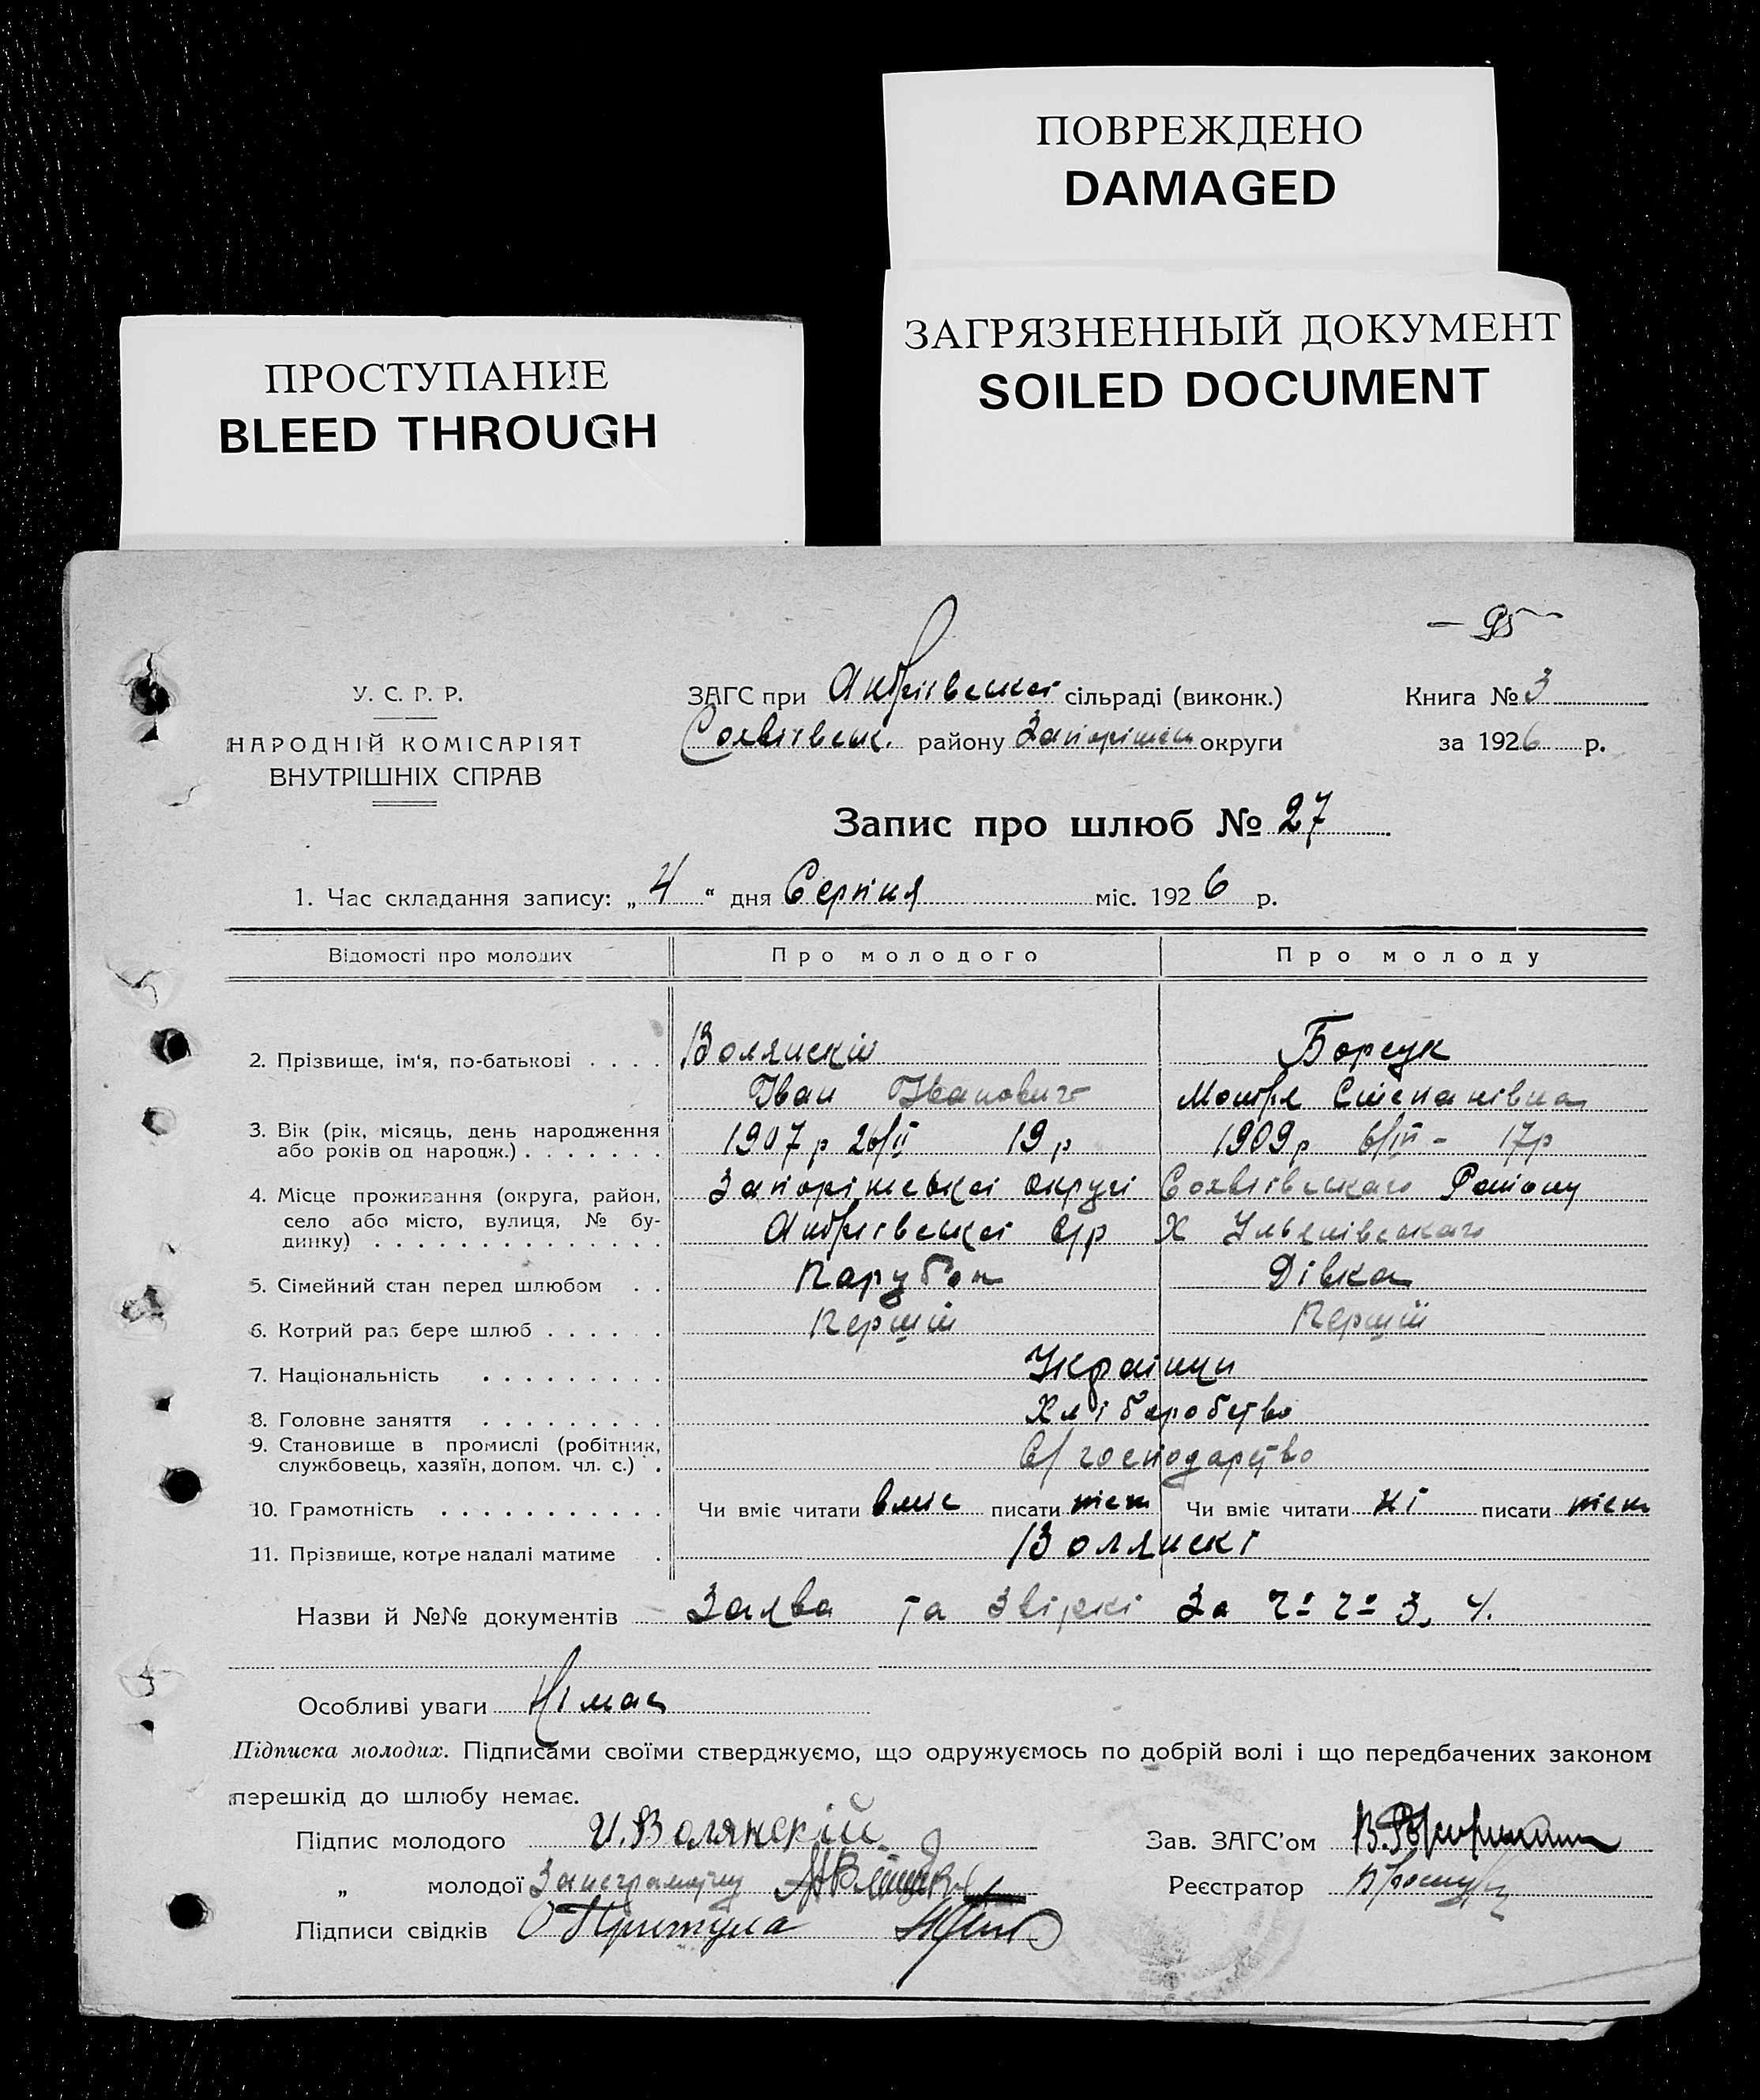 ПОВРЕЖДЕНО
DAMAGED
ЗАГРЯЗНЕННЫЙ ДОКУМЕНТ
SOILED DOCUMENT
ПРОСТУПАНИЕ
BLEED THROUGH
— 95 —
У. С. Р. Р.
НАРОДНІЙ КОМІСАРІЯТ
ВНУТРІШНІХ СПРАВ
ЗАГС при Андріївській сільраді (виконк.)
району Запоріжськ округи
Книга № 3
за 1926 р.
Запис про шлюб № 27
1. Час складання запису: „ 4 “ дня Серпня міс. 1926 р.
Відомості про молодих Про молодого Про молоду
2. Прізвище, ім'я, по-батькові . . . . Волянскій Борсук
Іван Іванович Мотря Степанівна
3. Вік (рік, місяць, день народження
або років од народж.) . . . . . . . 1907 р 26/II 19 р 1909 р 17р
4. Місце проживання (округа, район, Запоріжської округи Району
село або місто, вулиця, № бу- Андріївської с/р Х
динку) . . . . . . . . . . . . . .
5. Сімейний стан перед шлюбом . . Парубок Дівка
6. Котрий раз бере шлюб . . . . . . Перший Перший
7. Національність . . . . . . . . . Українци
8. Головне заняття . . . . . . . . . Хліборобство
9. Становище в промислі (робітник,
службовець, хазяїн, допом. чл. с.) . С/господарство
10. Грамотність . . . . . . . . . . . Чи вміє читати вміє писати теж Чи вміє читати ні писати теж
11. Прізвище, котре надалі матиме . Волянскі
Назви й №№ документів Заява та За 3, 4.
Особливі уваги Німає
Підписка молодих. Підписами своїми стверджуємо, що одружуємось по добрій волі і що передбачених законом
перешкід до шлюбу немає.
Підпис молодого И. Волянскій
Зав. ЗАГС'ом
„ молодої За неграмотну
Реєстратор
Підписи свідків Притула